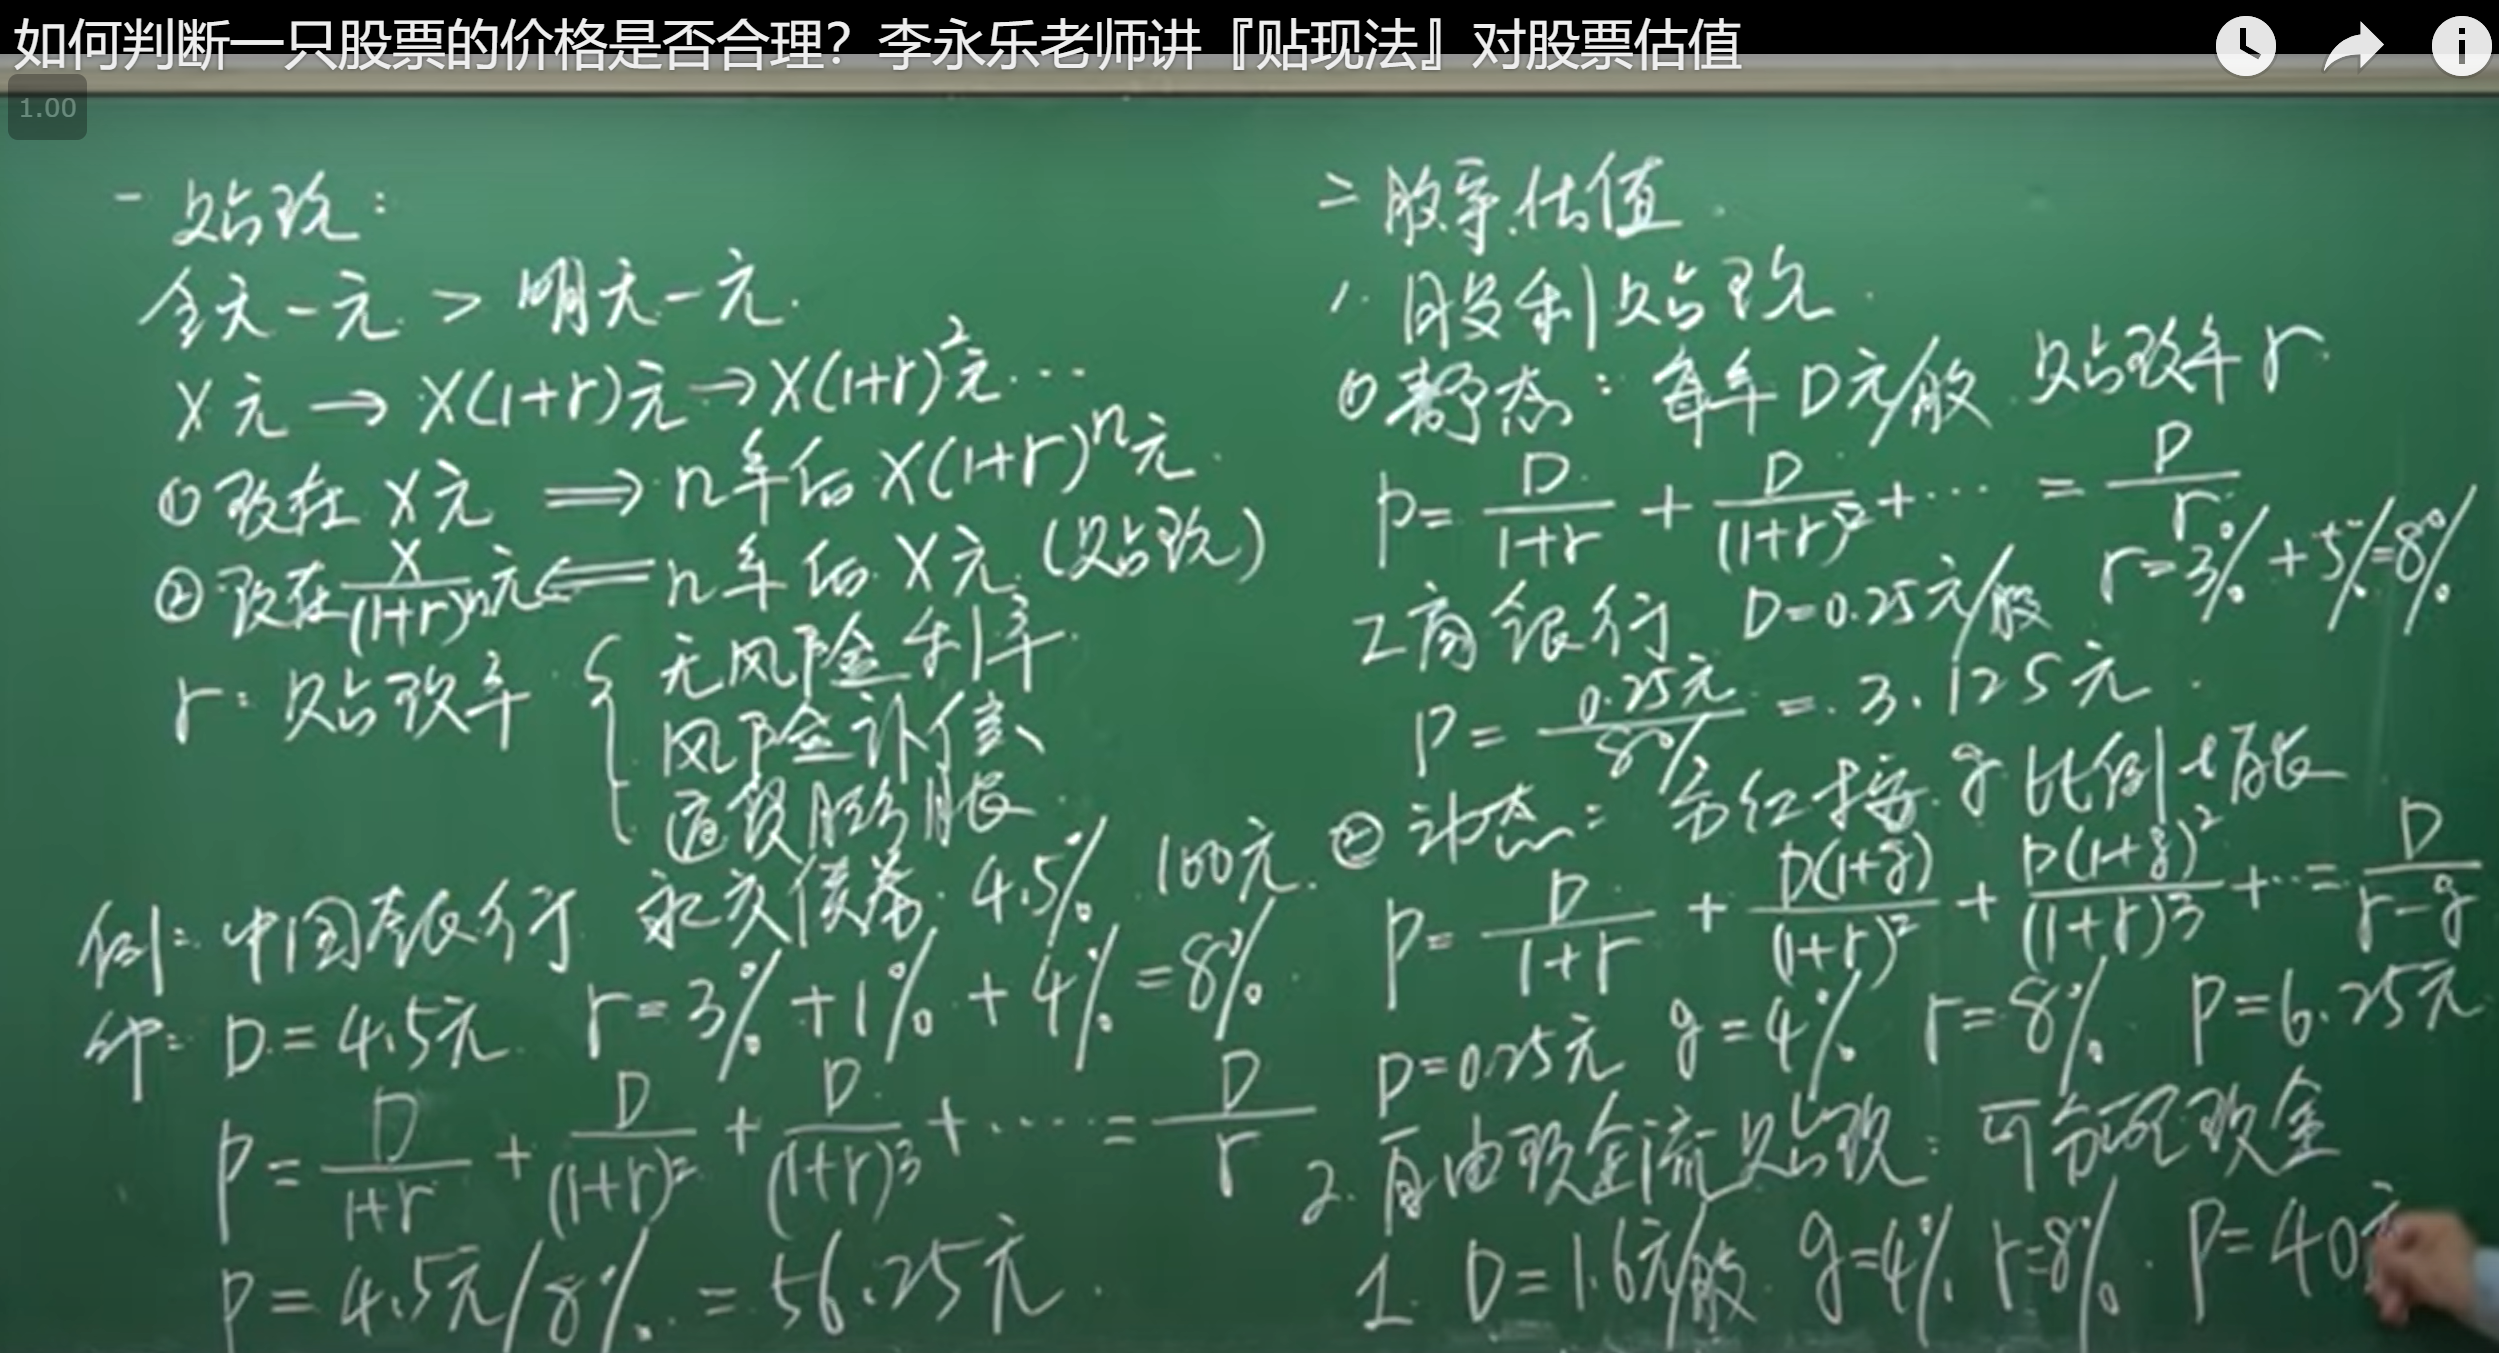 如何判断一只股票的价格是否合理？李永乐老师讲『贴现法』对股票估值
1.00
一 贴现：
今天一元 > 明天一元.
X元 → X(1+r)元 → X(1+r)²元…
① 现在 X元 ⟹ n年后 X(1+r)ⁿ元.
② 现在 X/(1+r)ⁿ元 ⟸ n年后 X元. (贴现)
r: 贴现率 { 无风险利率
风险补偿
通货膨胀
例: 中国银行 永久债券 4.5% 100元.
D = 4.5元 r = 3% + 1% + 4% = 8%
P = D/(1+r) + D/(1+r)² + D/(1+r)³ + …… = D/r
P = 4.5元/8% = 56.25元.
二 股票估值
1. 股利贴现
① 静态: 每年 D元/股 贴现率 r.
P = D/(1+r) + D/(1+r)² + … = D/r
工商银行 D=0.25元/股 r=3%+5%=8%
P = 0.25元/8% = 3.125元.
② 动态: 分红按 g 比例增长
P = D/(1+r) + D(1+g)/(1+r)² + D(1+g)²/(1+r)³ + … = D/(r-g)
D=0.25元 g=4% r=8% P=6.25元
2. 自由现金流贴现: 可分配现金
工 D=1.6元/股 g=4% r=8% P=40元